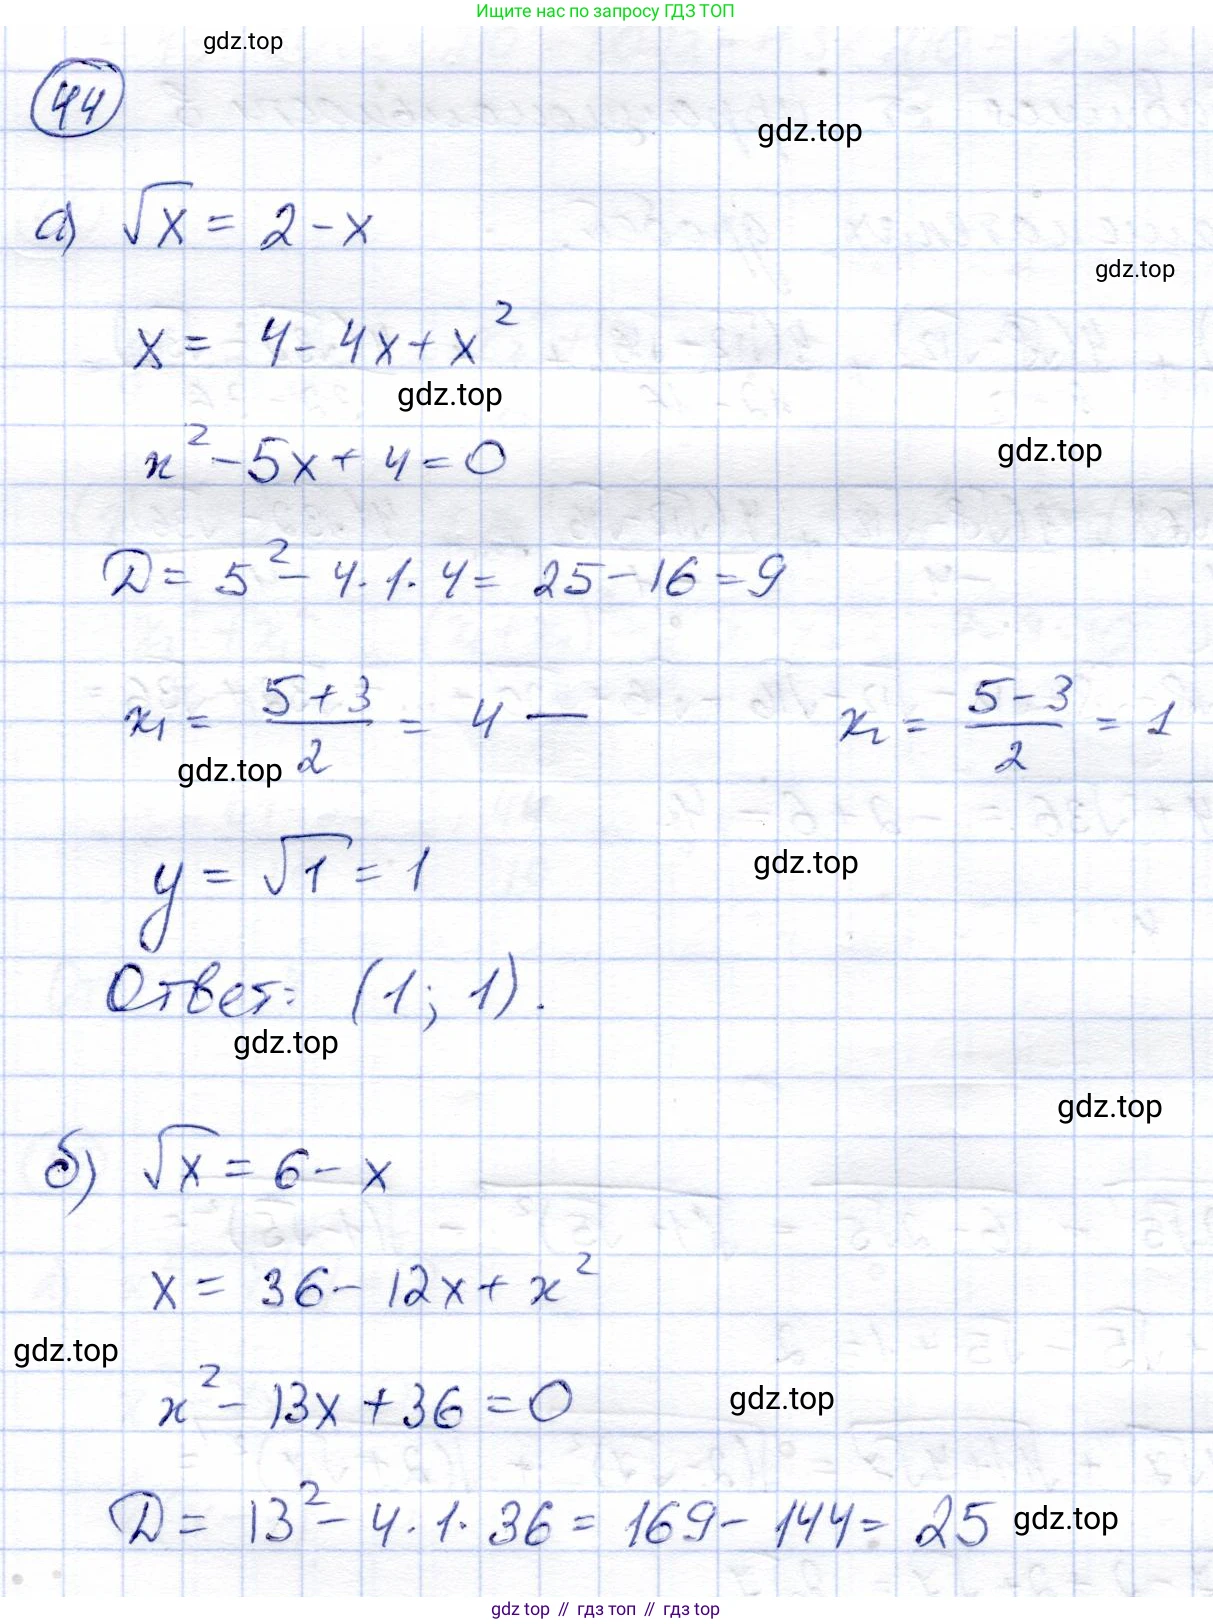 Ищите нас по запросу ГДЗ ТОП
gdz.top
44
gdz.top
а) √x = 2 - x
gdz.top
x = 4 - 4x + x²
gdz.top
x² - 5x + 4 = 0
gdz.top
D = 5² - 4·1·4 = 25 - 16 = 9
x₁ = (5+3)/2 = 4 —    x₂ = (5-3)/2 = 1
gdz.top
y = √1 = 1
gdz.top
Ответ: (1; 1).
gdz.top
gdz.top
б) √x = 6 - x
x = 36 - 12x + x²
gdz.top
x² - 13x + 36 = 0
gdz.top
D = 13² - 4·1·36 = 169 - 144 = 25
gdz.top
gdz top // гдз топ // gdz top